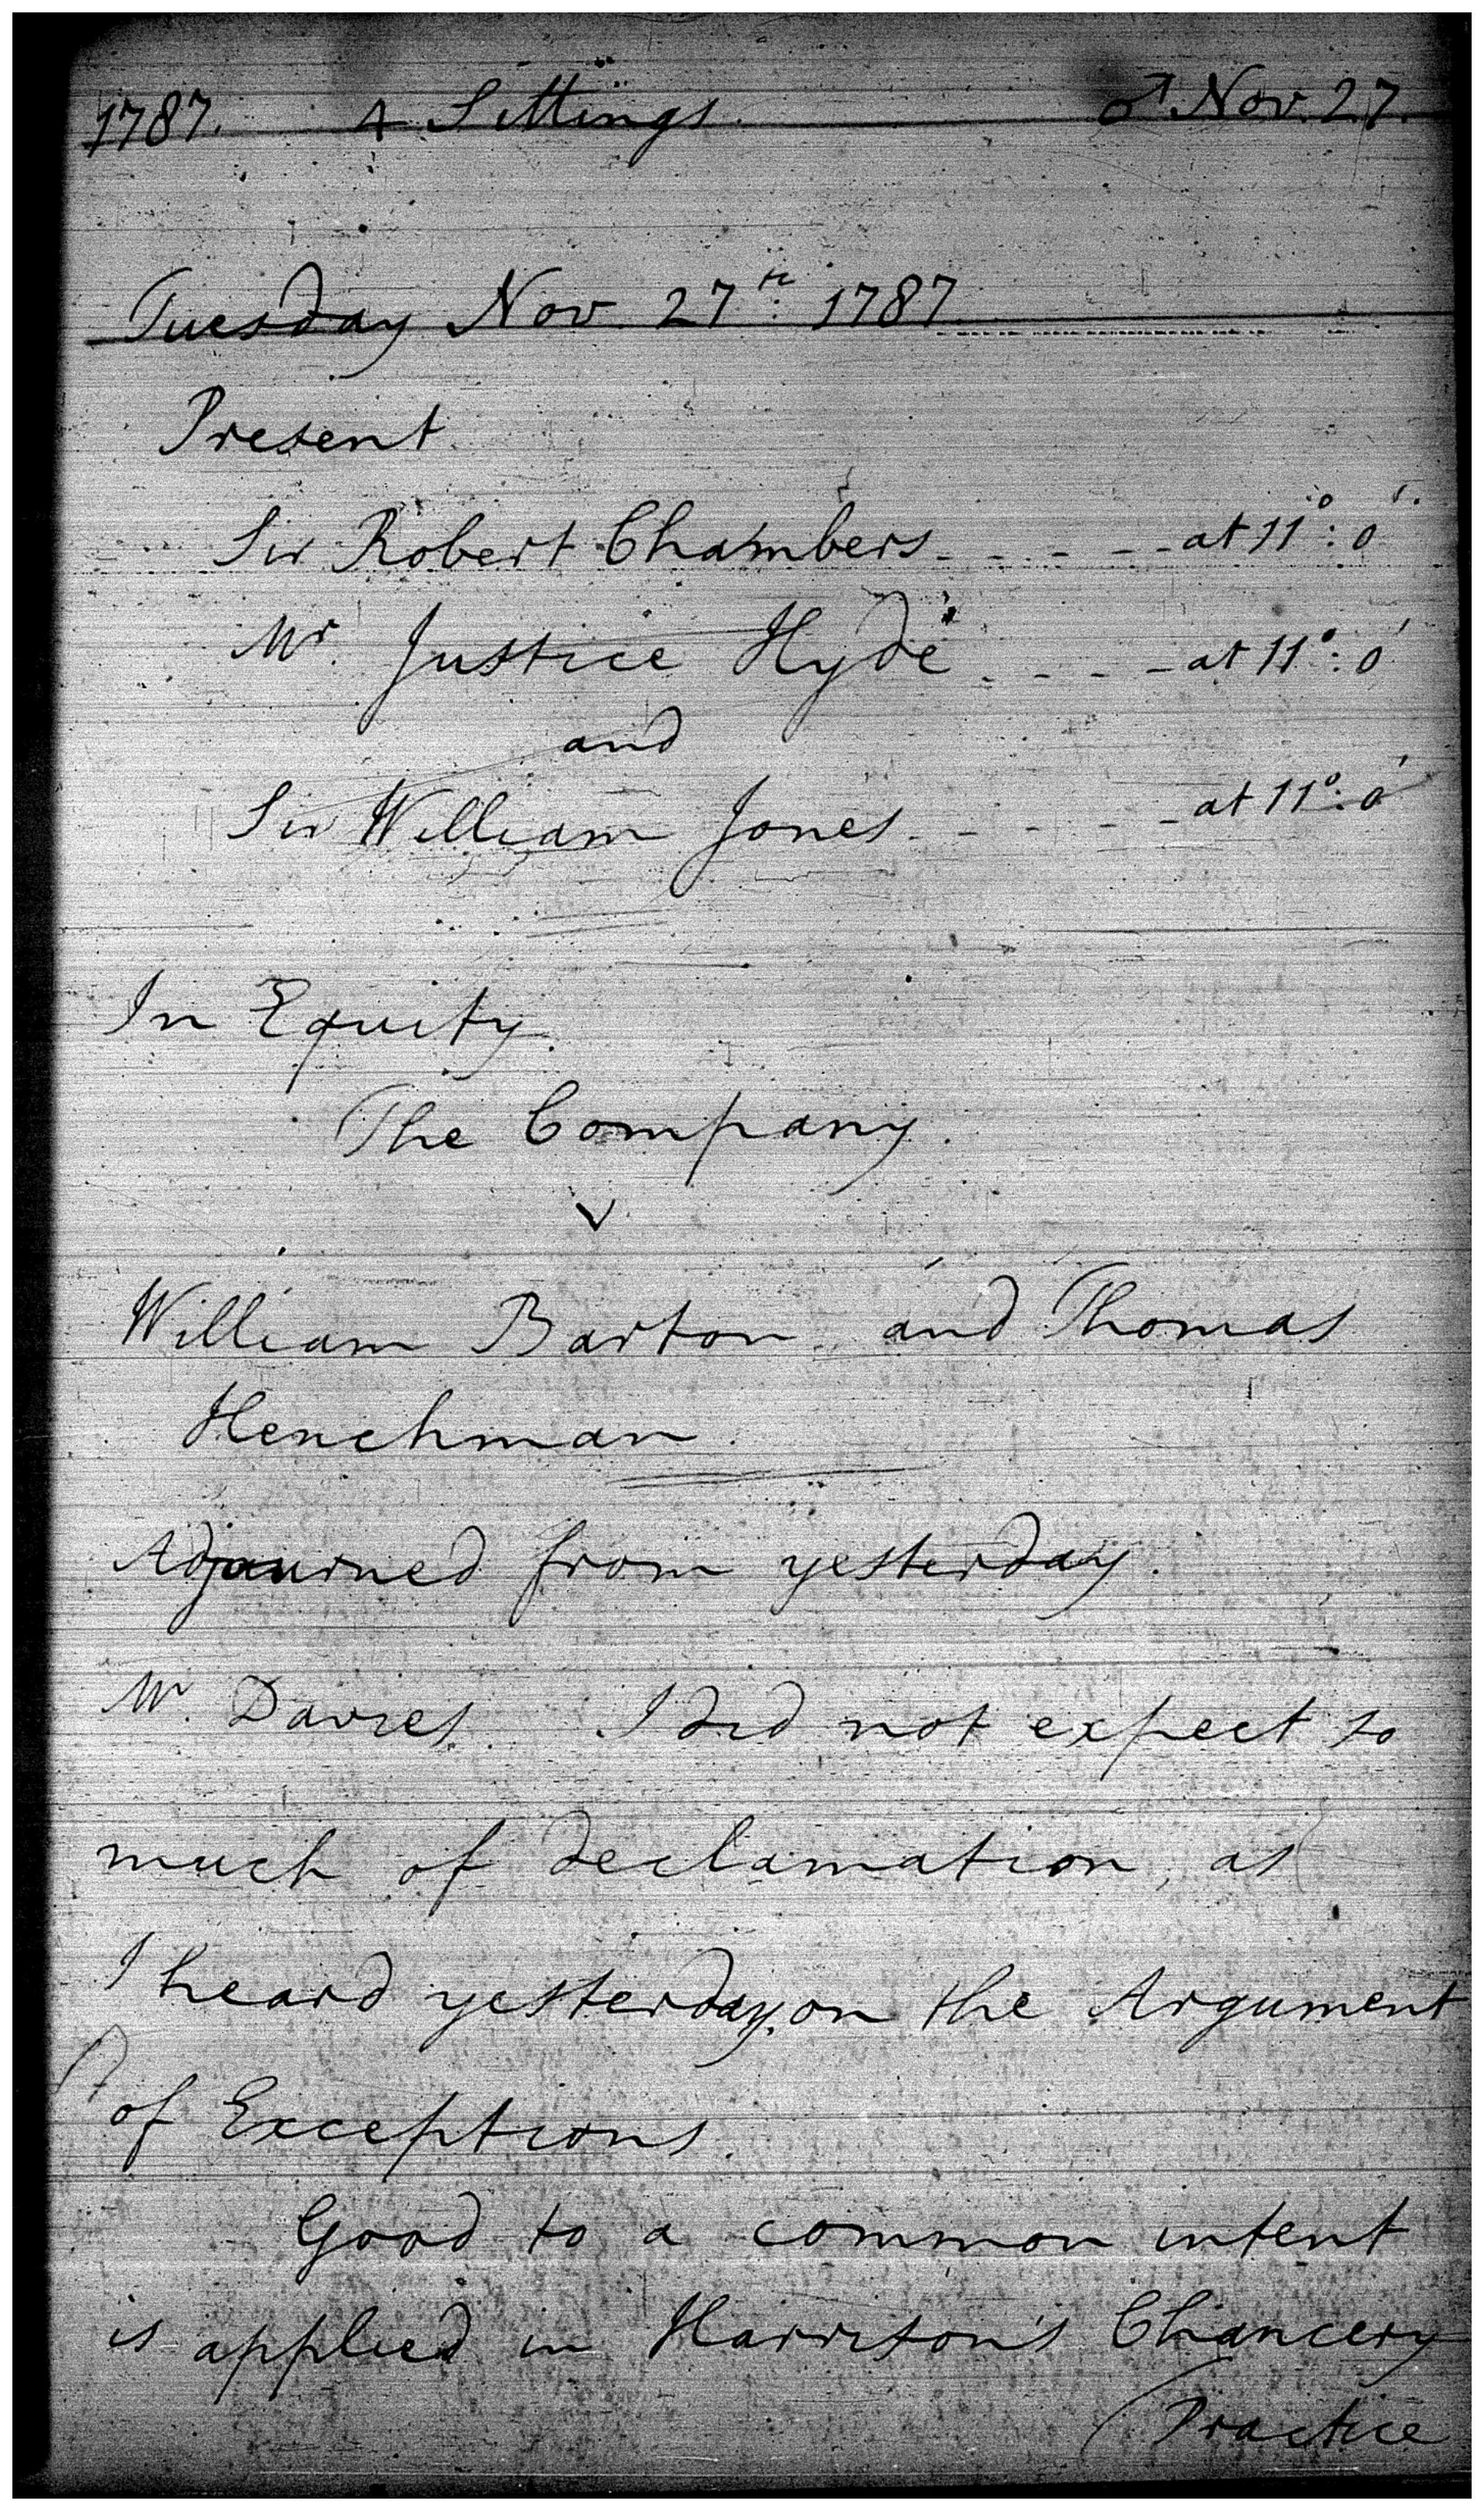 1787. 4 Sittings. ♂ Nov. 27.
Tuesday Nov. 27th. 1787
Present
Sir Robert Chambers - - - - - at 11°: 0'
Mr. Justice Hyde - - - - at 11°: 0'
and
Sir William Jones - - - - - at 11°: 0'
In Equity.
The Company.
v
William Barton and Thomas
Henchman.
Adjourned from yesterday.
Mr. Davies. I did not expect so
much of declamation, as
I heard yesterday, on the Argument
of Exceptions.
Good to a common intent
is applied in Harrison's Chancery
(Practice